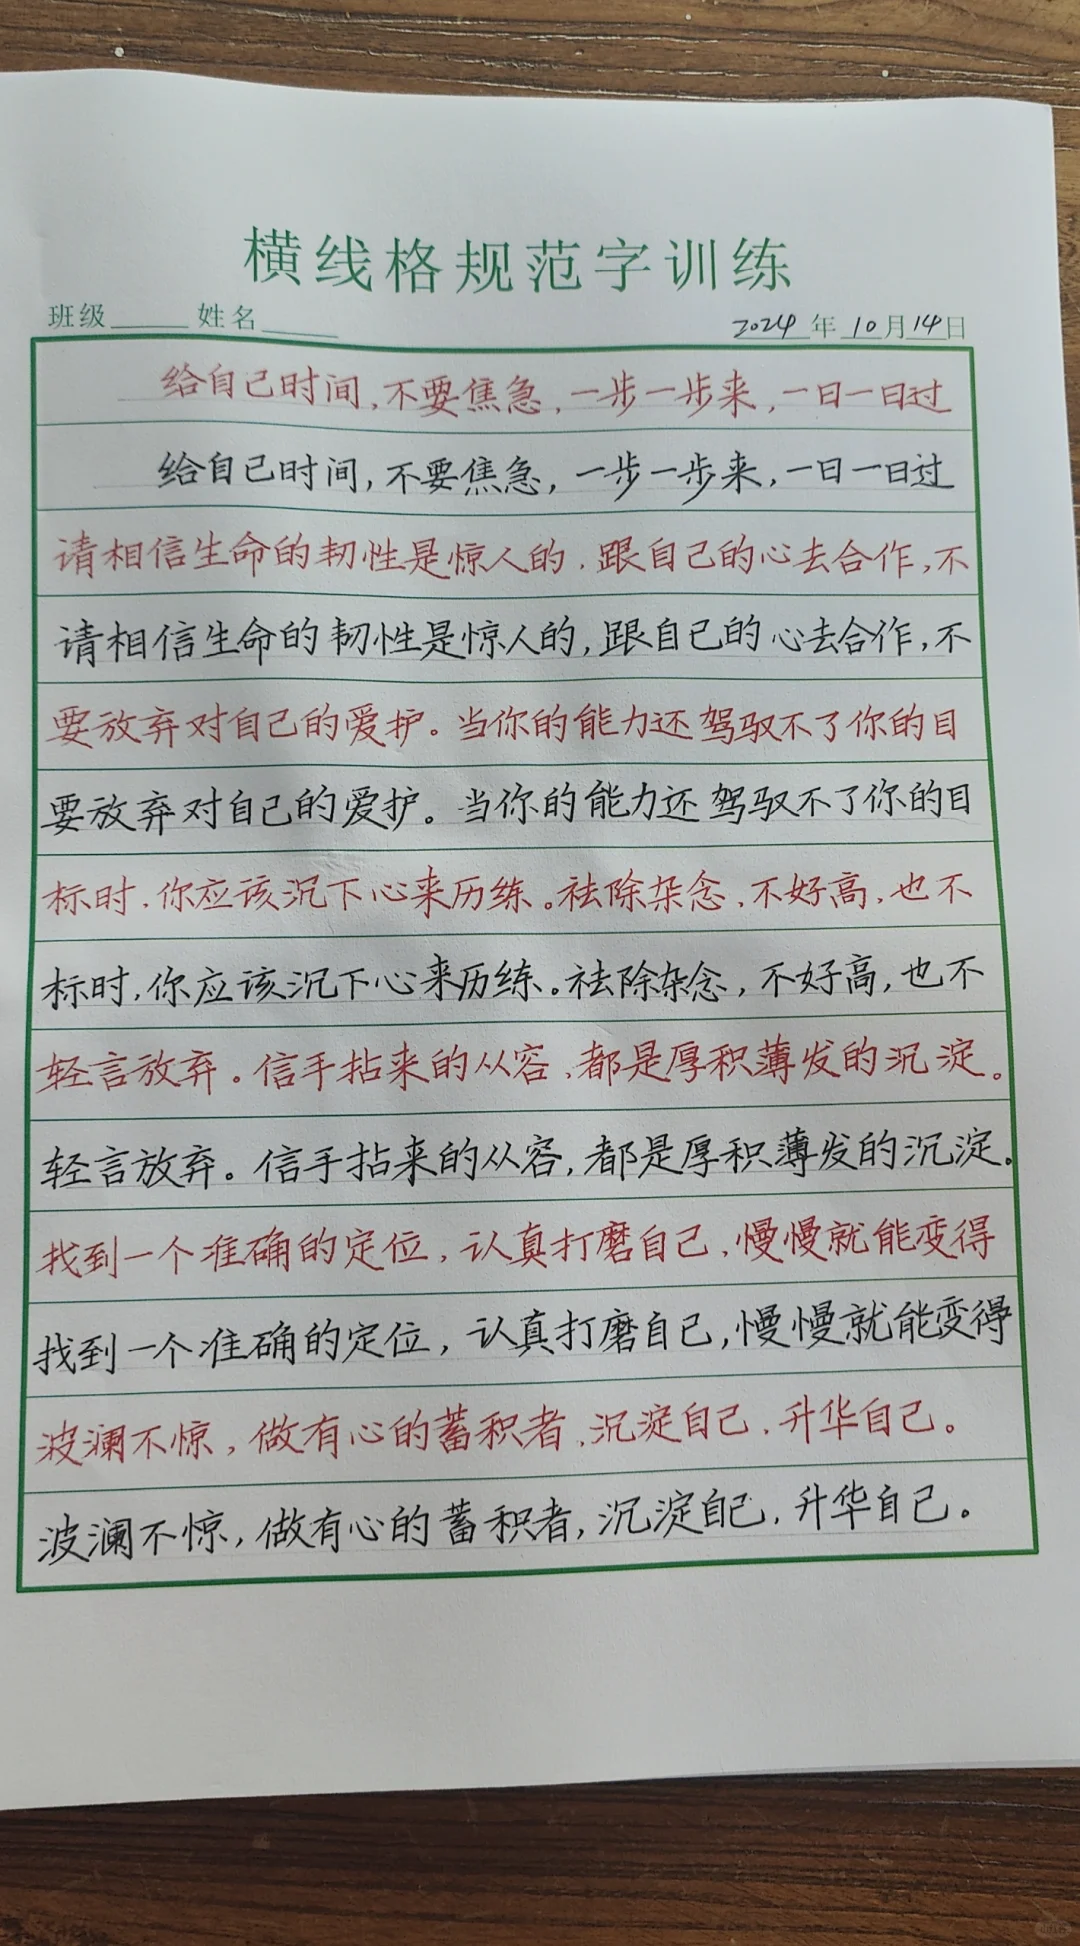 横线格规范字训练
班级 姓名 2024年10月14日
给自己时间,不要焦急,一步一步来,一日一日过
给自己时间,不要焦急,一步一步来,一日一日过
请相信生命的韧性是惊人的,跟自己的心去合作,不
请相信生命的韧性是惊人的,跟自己的心去合作,不
要放弃对自己的爱护。当你的能力还驾驭不了你的目
要放弃对自己的爱护。当你的能力还驾驭不了你的目
标时,你应该沉下心来历练。祛除杂念,不好高,也不
标时,你应该沉下心来历练。祛除杂念,不好高,也不
轻言放弃。信手拈来的从容,都是厚积薄发的沉淀。
轻言放弃。信手拈来的从容,都是厚积薄发的沉淀。
找到一个准确的定位,认真打磨自己,慢慢就能变得
找到一个准确的定位,认真打磨自己,慢慢就能变得
波澜不惊,做有心的蓄积者,沉淀自己,升华自己。
波澜不惊,做有心的蓄积者,沉淀自己,升华自己。